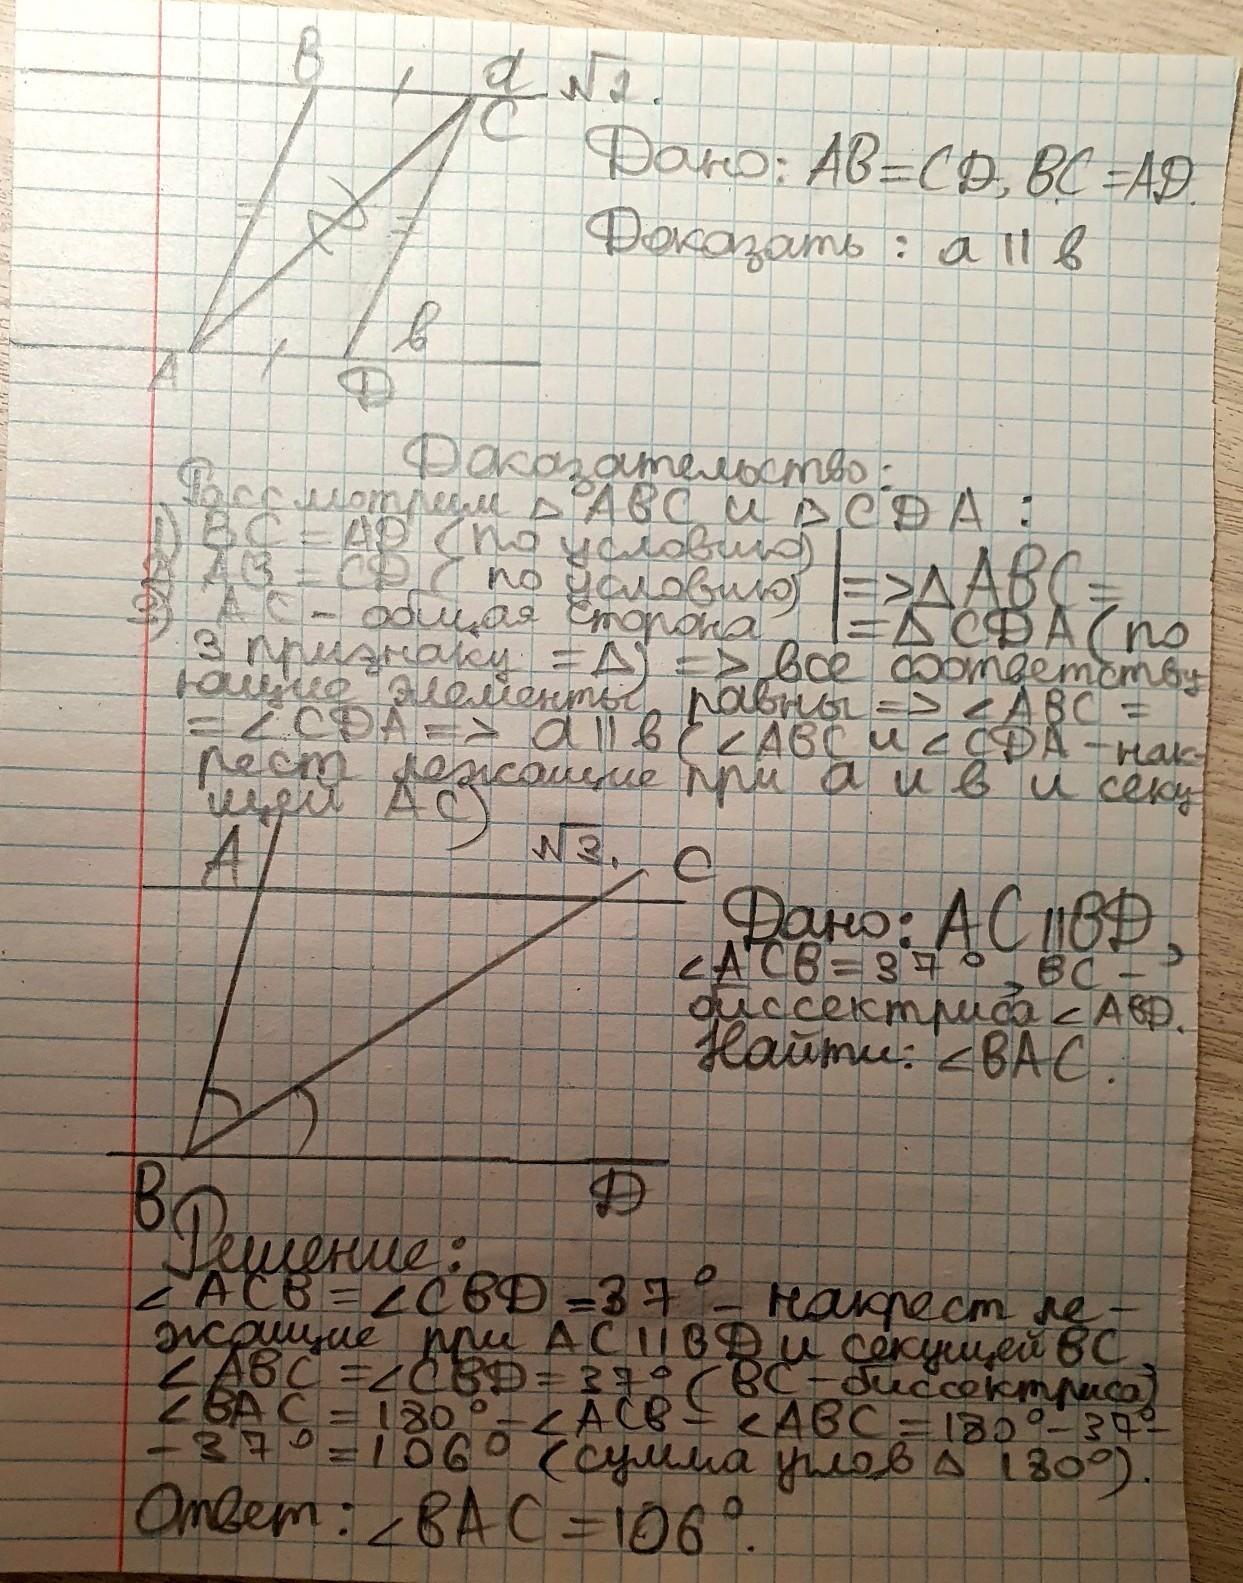 B a №2.
C
Дано: AB=CD, BC=AD.
Доказать: a || в
в
A D
Доказательство:
Рассмотрим △ABC и △CDA:
1) BC = AD (по условию)
2) AB = CD (по условию) | => △ABC =
3) AC - общая сторона | = △CDA (по
3 признаку = △) => все соответству
ющие элементы равны => ∠ABC =
= ∠CDA => a || в (∠ABC и ∠CDA - нак-
рест лежащие при a и в и секу
щей AC)
A №3. C
Дано: AC || BD,
∠ACB = 37°, BC -
биссектриса ∠ABD.
Найти: ∠BAC.
B D
Решение:
∠ACB = ∠CBD = 37° - накрест ле-
жащие при AC || BD и секущей BC,
∠ABC = ∠CBD = 37° (BC - биссектриса)
∠BAC = 180° - ∠ACB - ∠ABC = 180° - 37° -
- 37° = 106° (сумма углов △ 180°).
Ответ: ∠BAC = 106°.